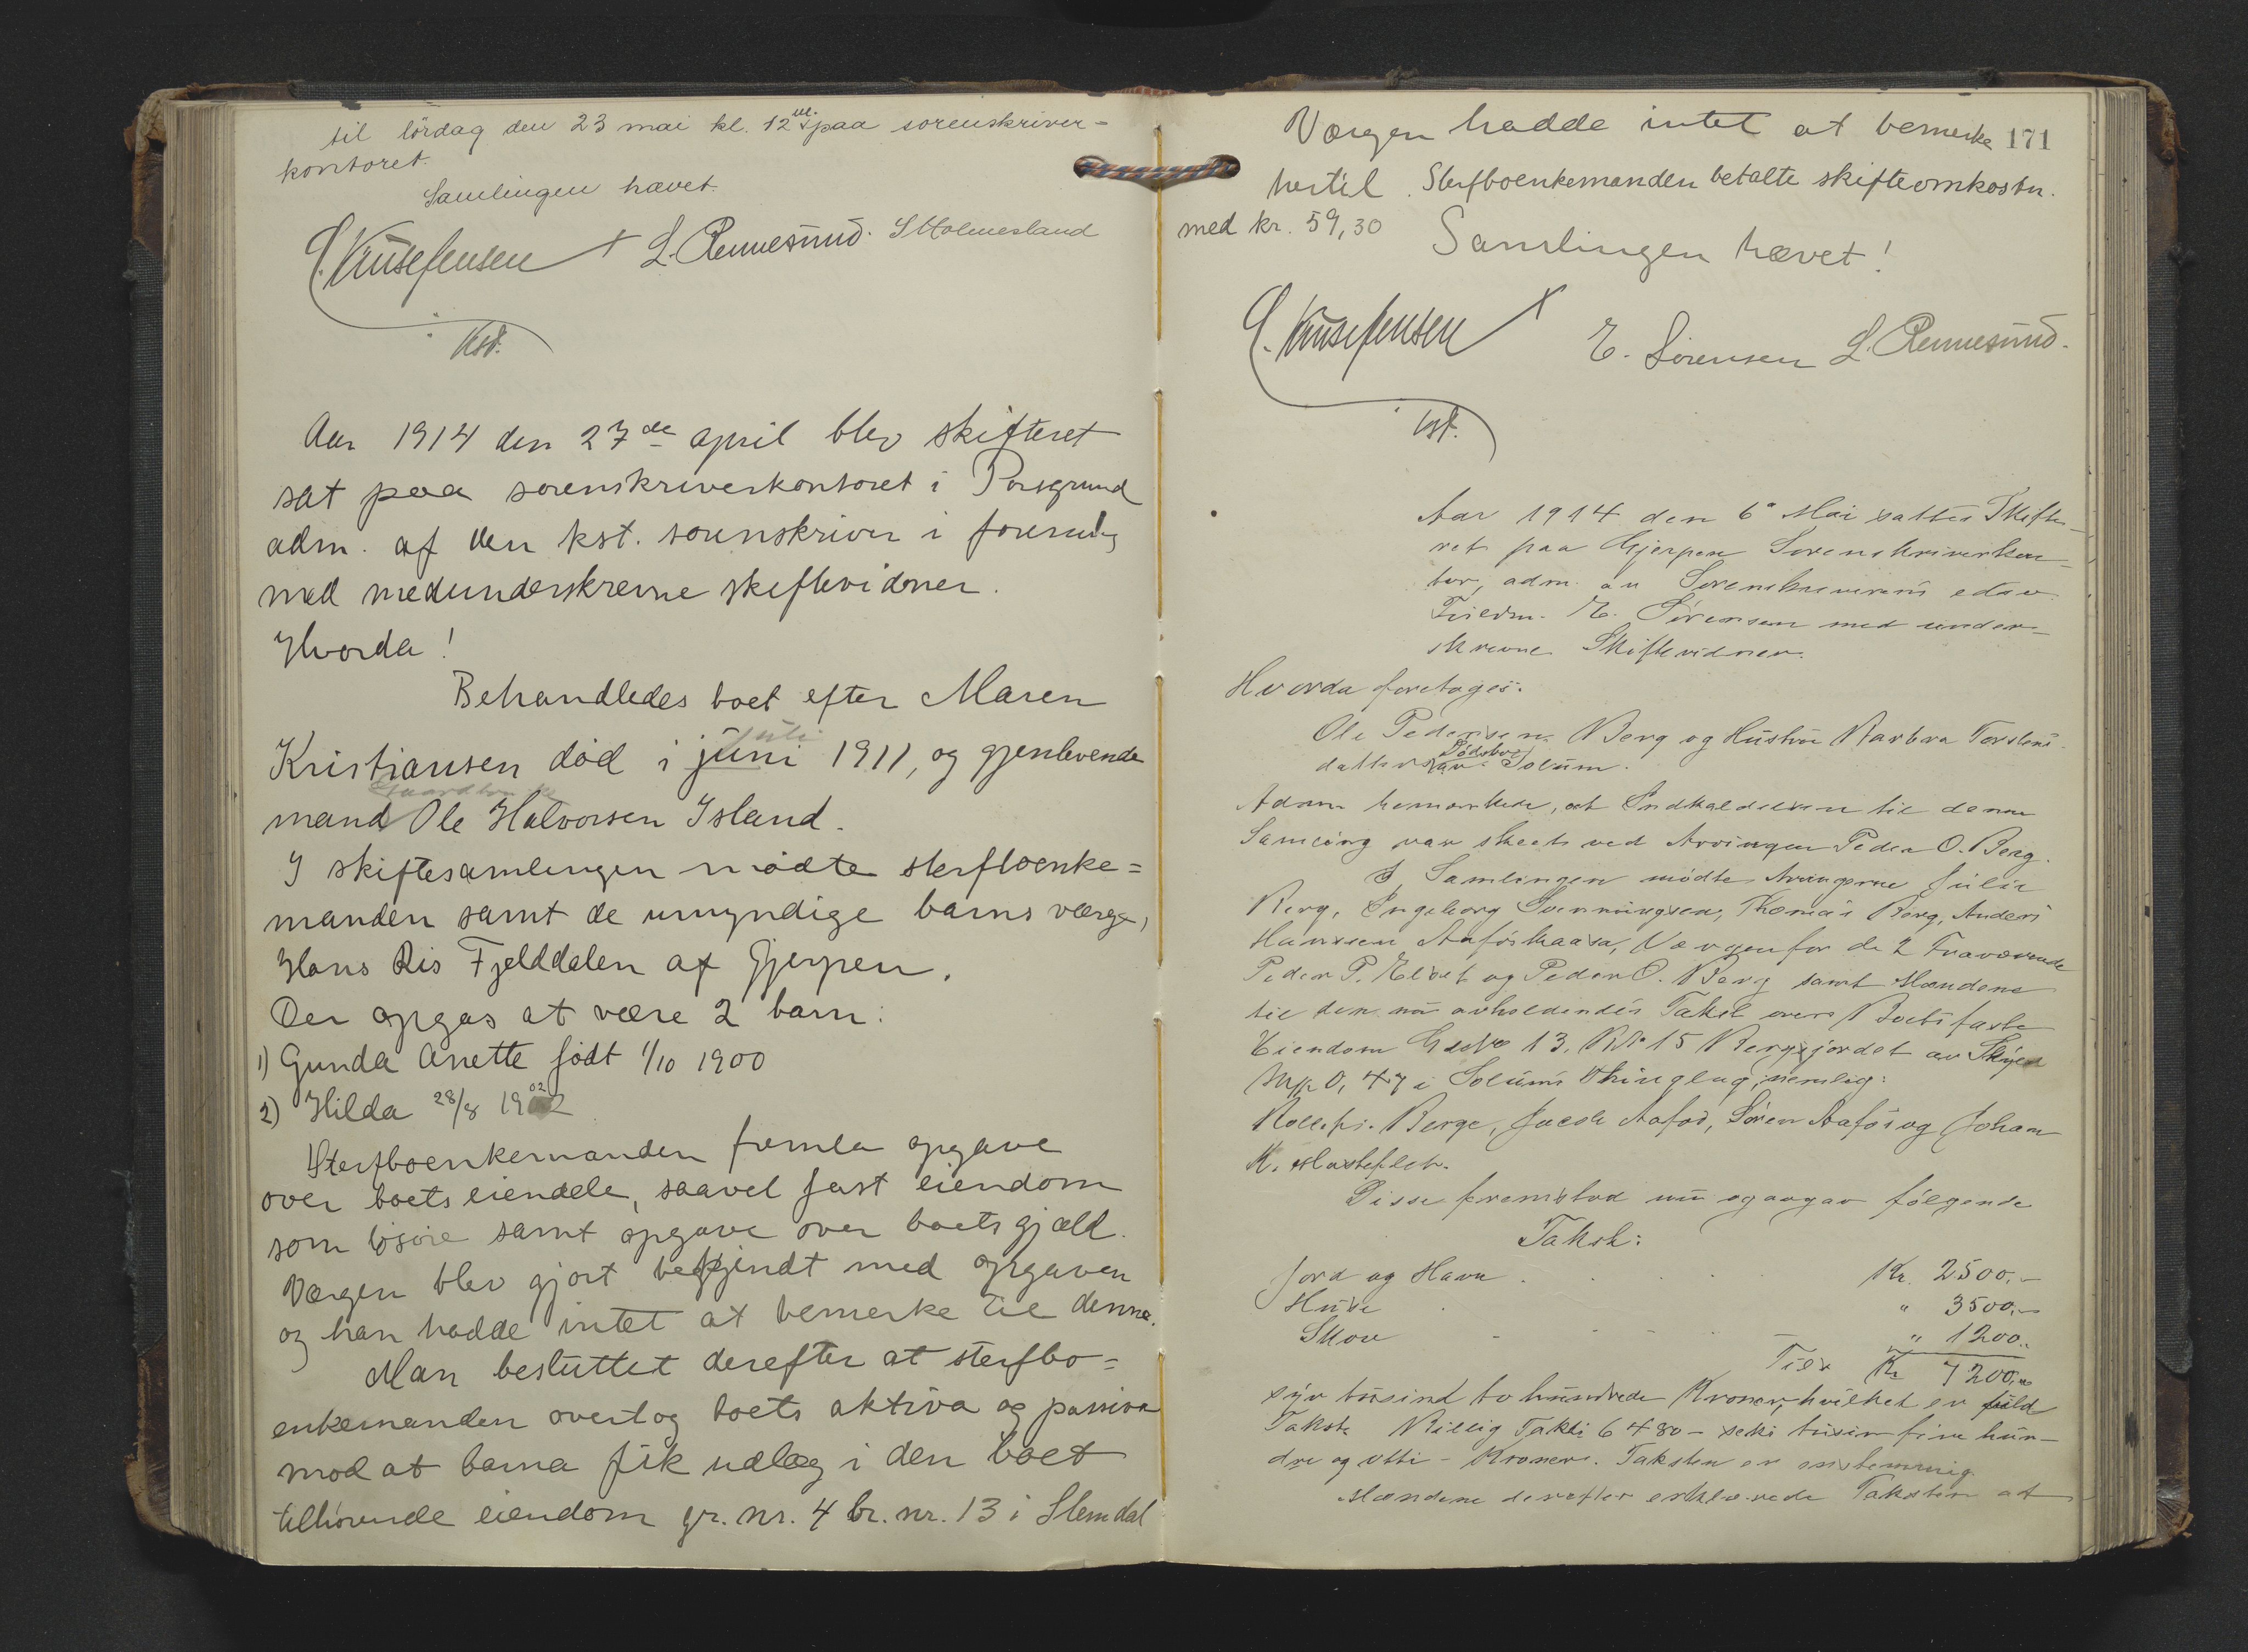 til lördag den 23 mai kl. 12 paa sorenskriver-
kontoret.
Samlingen hævet.
L. Rennesund. S Holmesland
Kst.
Aar 1914 den 27de april blev skifteret
sat paa sorenskriverkontoret i Porsgrund
adm. af den kst. sorenskriver i forening
med medunderskrevne skiftevidner.
Hvorda!
Behandledes boet efter Maren
juli
Kristiansen död i juni 1911, og gjenlevende
mand Ole Halvorsen Island.
I skiftesamlingen mödte sterfboenke=
manden samt de umyndige barns værge,
Hans Ris Fjelddalen af Gjerpen.
Der opgas at være 2 barn:
1) Gunda Anette födt 1/10 1900
2) Hilda 28/8 1902
Sterfboenkemanden fremla opgave
over boets eiendele, saavel fast eiendom
som lösöre samt opgave over boets gjæld.
Værgen blev gjort bekjendt med opgaven
og han hadde intet at bemerke til denne.
Man besluttet derefter at sterfbo=
enkemanden overtog boets aktiva og passiva
mod at barna fik udlæg i den boet
tilhörende eiendom gr. nr. 4 br. nr. 13 i Slemdal
171
Værgen hadde intet at bemerke
hertil. Sterfboenkemanden betalte skifteomkostn.
med kr. 59,30
Samlingen hævet!
E. Sörensen L. Rennesund.
kst.
Aar 1914 den 6 Mai sattes Skifte-
ret paa Gjerpen Sorenskriverkon-
tor, adm. av Sorenskriverens edsv.
Fuldm. E. Sörensen med under-
skrevne Skiftevidner.
Hvorda foretoges:
Ole Pedersen Berg og Hustru Barbra Torstens-
datters Dödsbo av Solum.
Adm. bemærkede, at Indkaldelsen til denne
Samling var skeet ved Arvingen Peder O. Berg.
I Samlingen mödte Arvingerne Julie
Berg, Ingeborg Svenningsen, Thomas Berg, Anders
Hanssen Aafoskaasa, Værgen for de 2 Fraværende
Peder P. og Peder O. Berg samt Mændene
til den nu avholdendes Takst over Boets faste
Eiendom G 13. BN 15 Bergsjordet av Skyld
Mk 0,47 i Solums Thinglag, nemlig:
Berge, Jacob Aafos, Sören Aafos og Johan
K.
Disse fremstod nu og avgav fölgende
Takst:
Jord og Havn Kr. 2500,-
Huse " 3500,-
Skov " 1200,-
Tils Kr 7200,-
syv tusind to hundrede Kroner, hvilket er fuld
Takst. Billig Takst 6480 - seks tusin fire hun-
dre og otti - Kroner. Taksten er enstemmig
Mændene derefter erklærede Taksten at